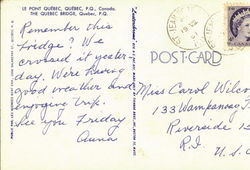 LE PONT QUÉBEC, QUÉBEC, P.Q., Canada.
THE QUEBEC BRIDGE, Quebec, P.Q.
Remember this
bridge? We
crossed it yester-
day. We're having
good weather and
enjoying trip.
See you Friday
Anna
POST CARD
Miss Carol Wilcox
133 Wampanoag
Riverside 15
R.I.
U.S.